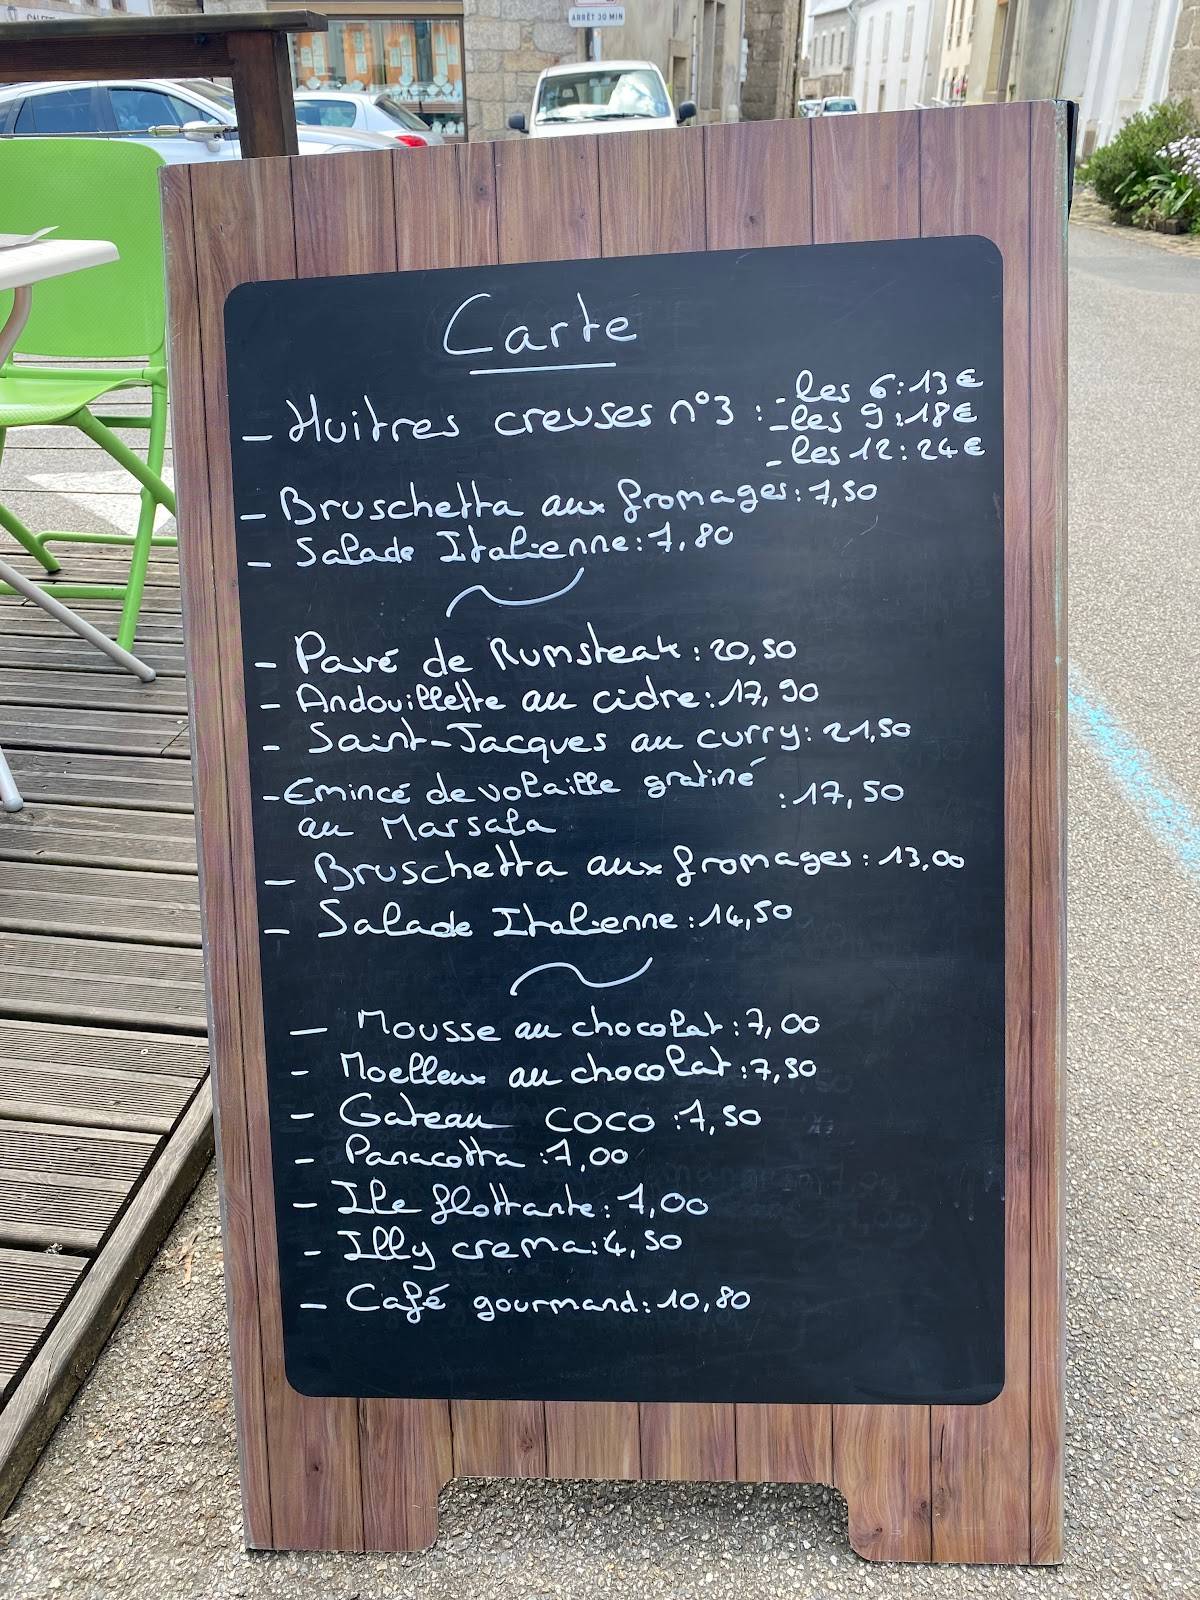 ARRÊT 30 MIN
Carte
- Huitres creuses n°3 : - les 6 : 13 €
- les 9 : 18 €
- les 12 : 24 €
- Bruschetta aux fromages : 7,50
- Salade Italienne : 7,80
- Pavé de Rumsteak : 20,50
- Andouillette au cidre : 17,90
- Saint-Jacques au curry : 21,50
- Emincé de volaille gratiné : 17,50
au Marsala
- Bruschetta aux fromages : 13,00
- Salade Italienne : 14,50
- Mousse au chocolat : 7,00
- Moelleux au chocolat : 7,50
- Gateau coco : 7,50
- Panacotta : 7,00
- Ile flottante : 7,00
- Illy crema : 4,50
- Café gourmand : 10,80